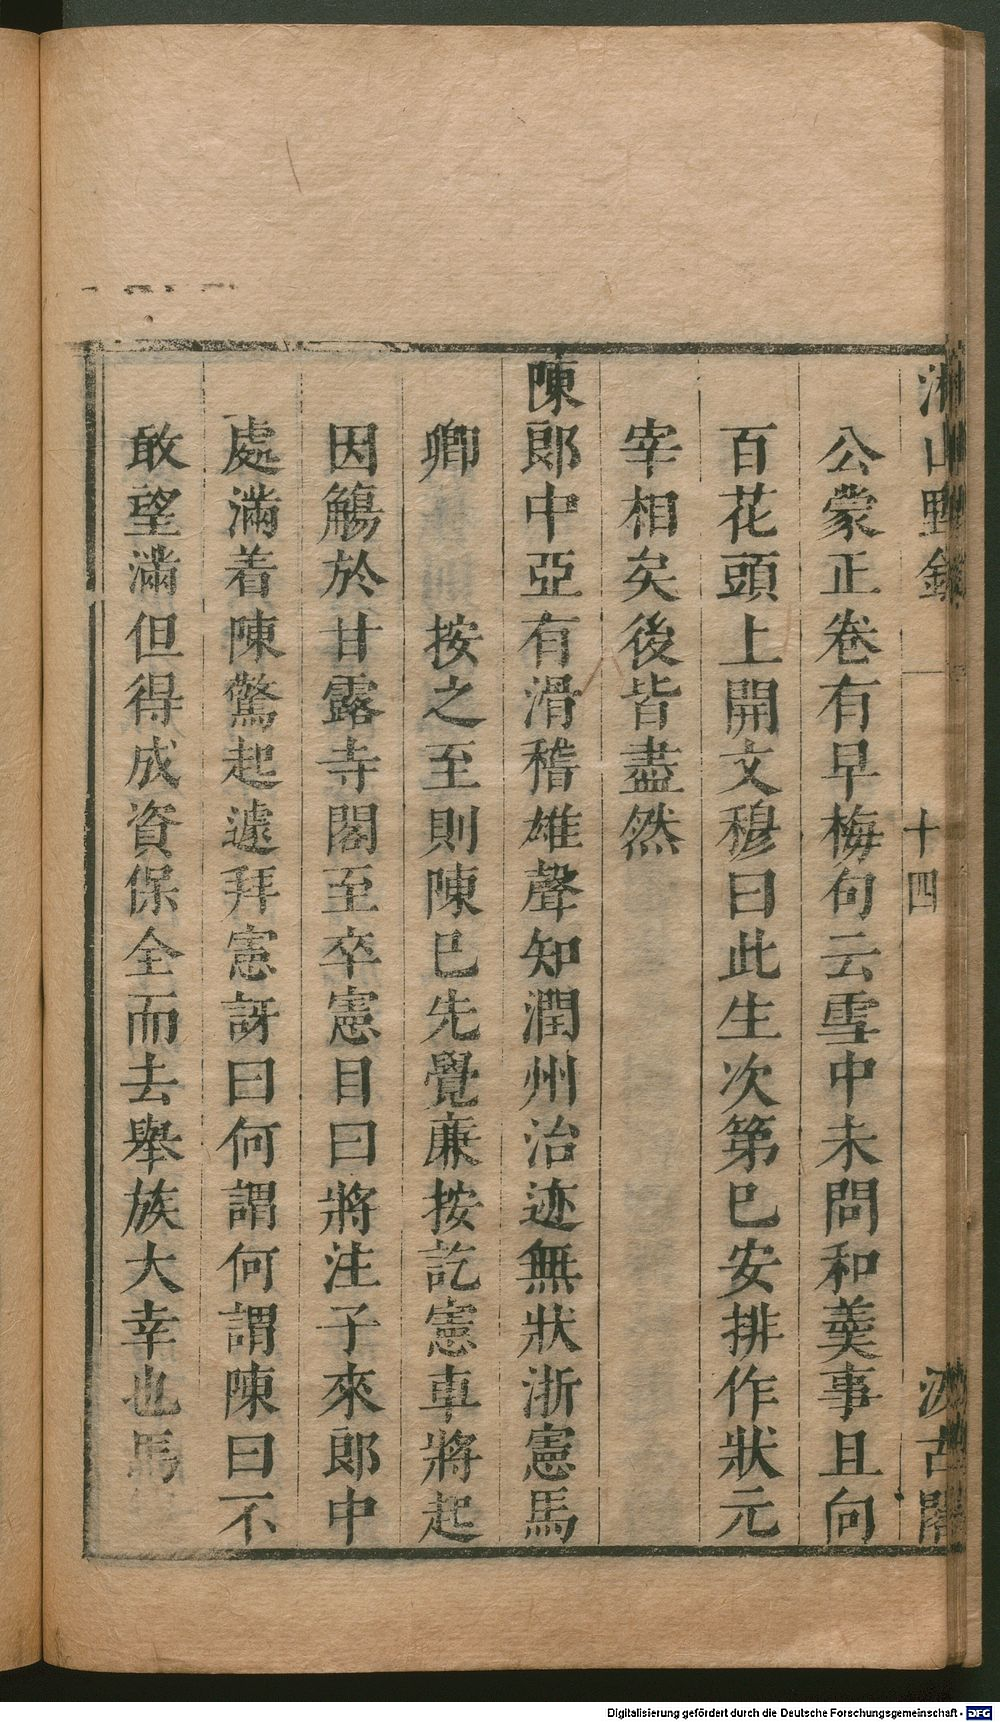 湘山野錄
十四
汲古閣
公蒙正卷有早梅句云雪中未問和羹事且向
百花頭上開文穆曰此生次第已安排作狀元
宰相矣後皆盡然
陳郎中亞有滑稽雄聲知潤州治迹無狀浙憲馬
卿 按之至則陳已先覺廉按訖憲車將起
因觴於甘露寺閣至卒憲目曰將注子來郎中
處滿着陳驚起遽拜憲訝曰何謂何謂陳曰不
敢望滿但得成資保全而去舉族大幸也馬
Digitalisierung gefördert durch die Deutsche Forschungsgemeinschaft - DFG